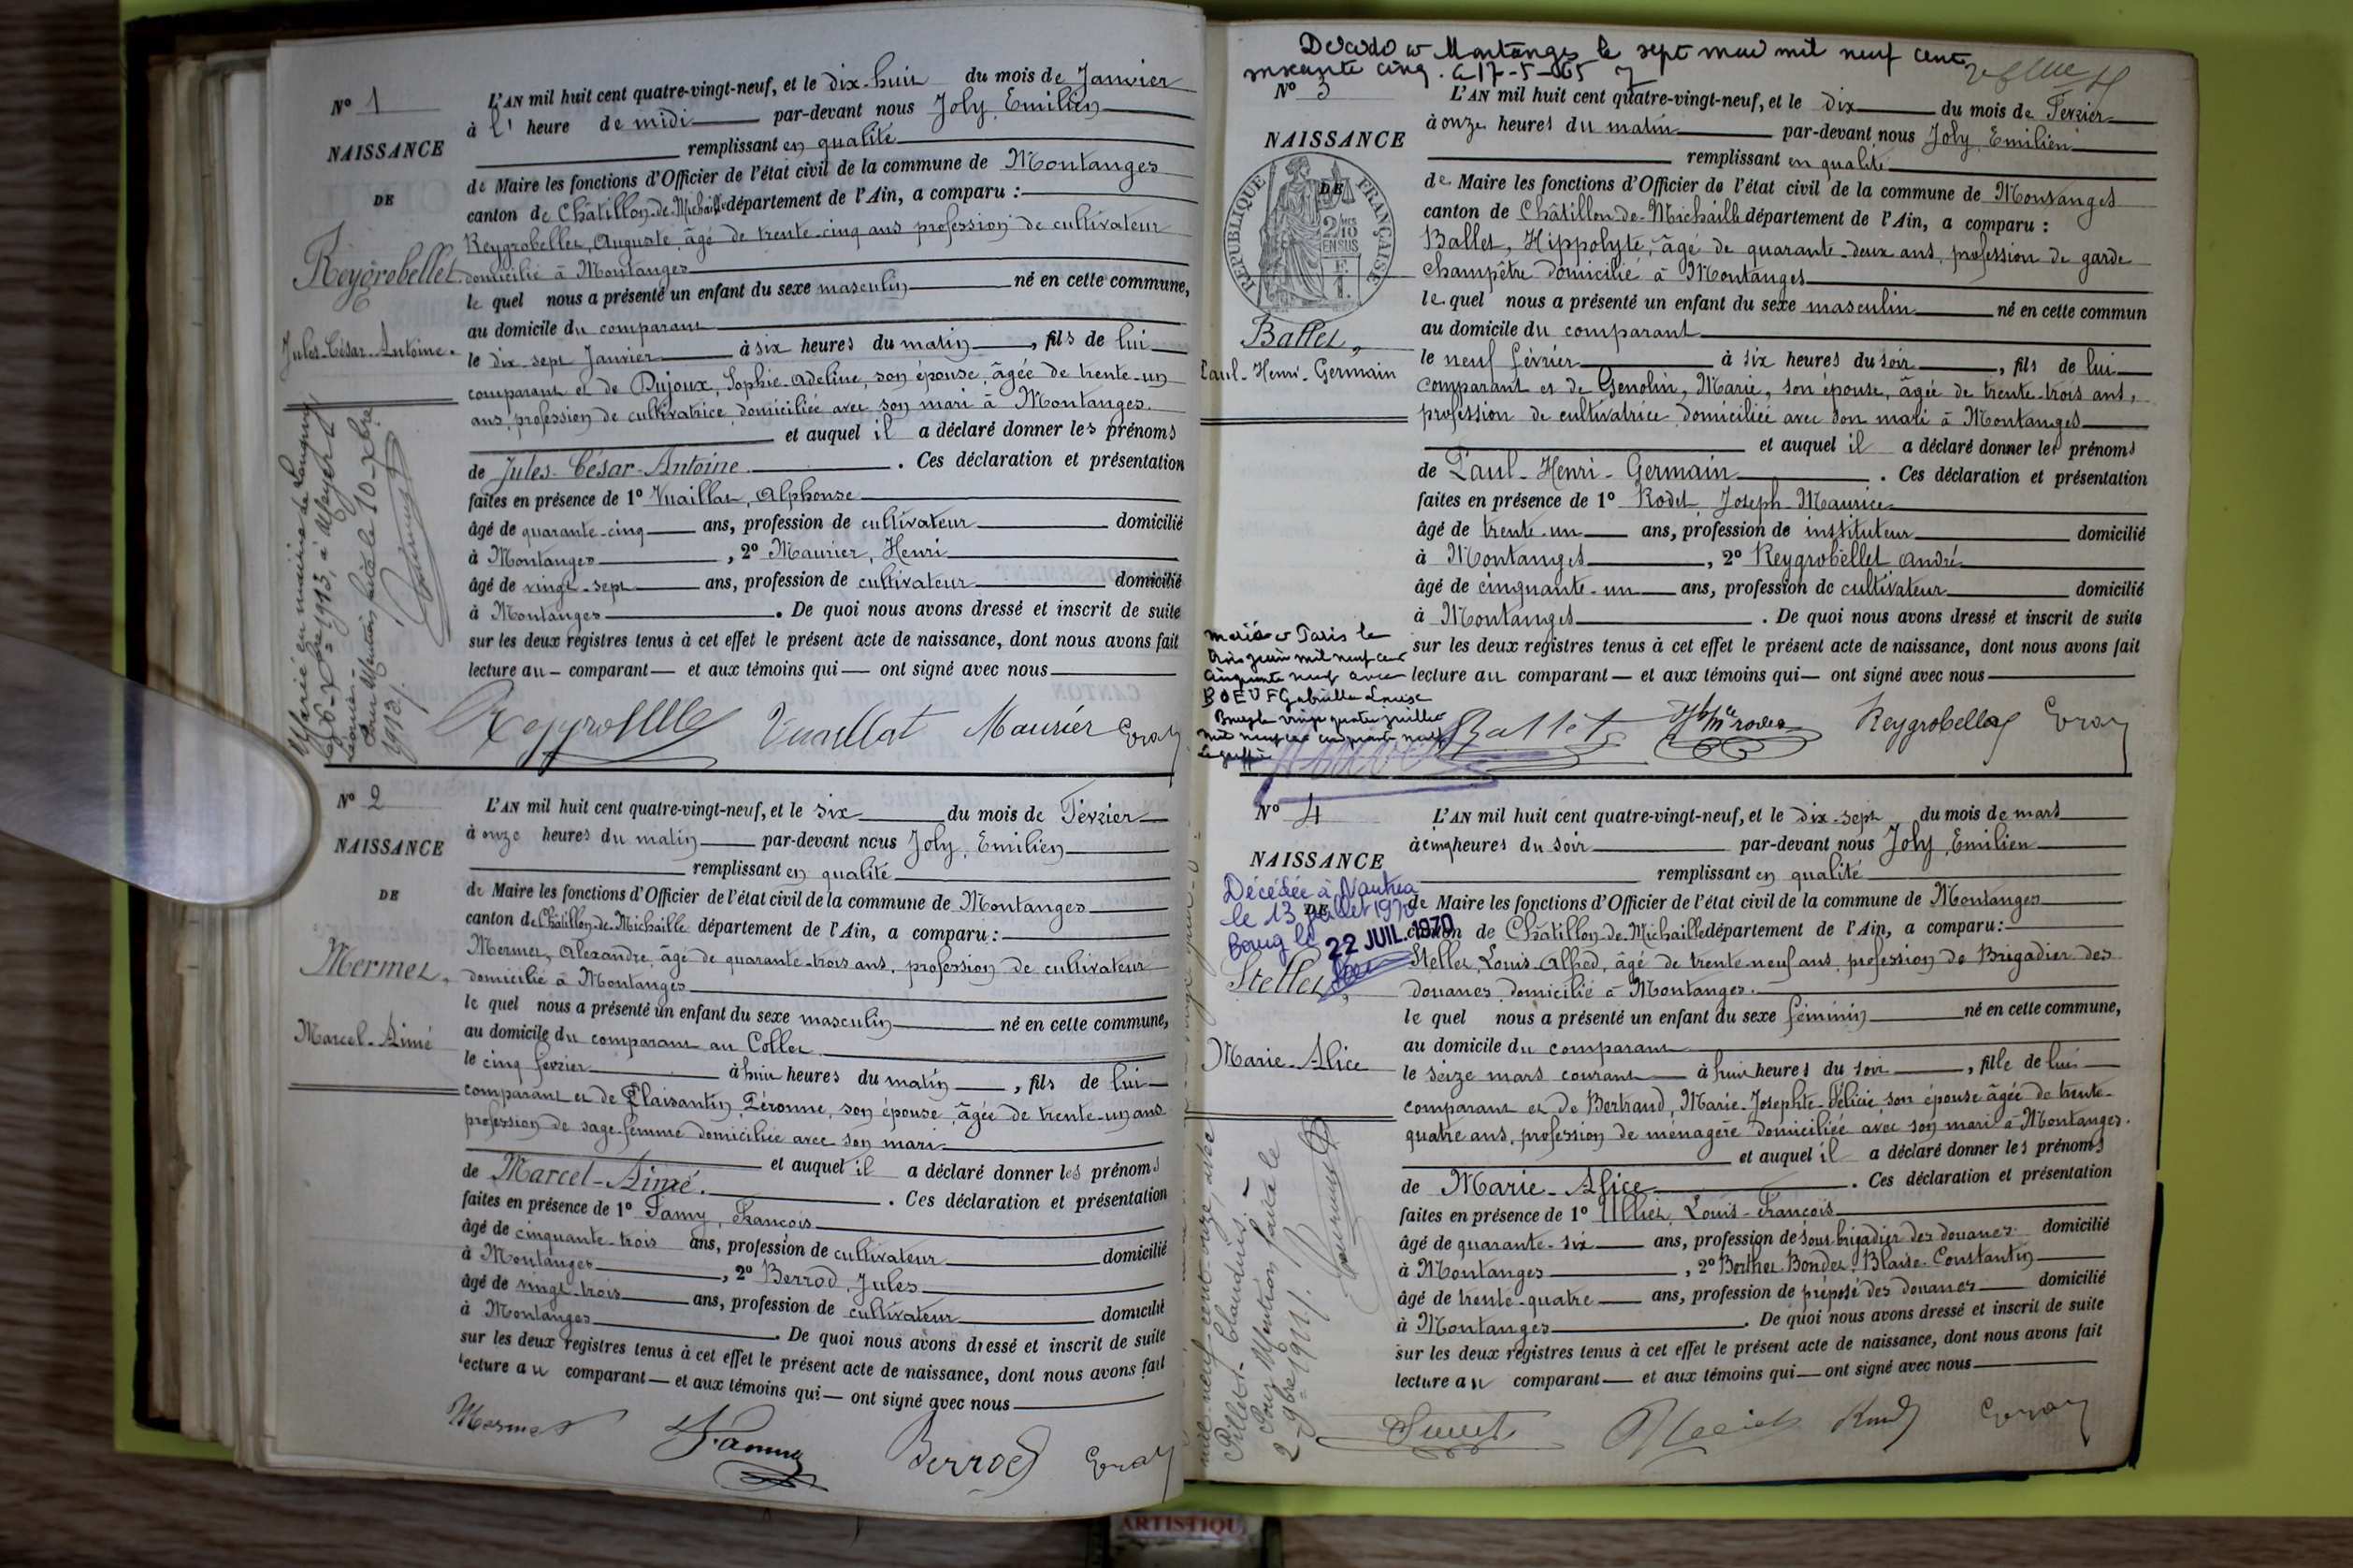 Nº 1
NAISSANCE
DE
Reygrobellet
Jules-César-Antoine.
L'AN mil huit cent quatre-vingt-neuf, et le dix-huit du mois de Janvier
à l' heure de midi par-devant nous Joly, Emilien
remplissant en qualité
de Maire les fonctions d'Officier de l'état civil de la commune de Montanges
canton de Châtillon-de-Michaille département de l'Ain, a comparu :
Reygrobellet, Auguste, âgé de trente-cinq ans profession de cultivateur
domicilié à Montanges
le quel nous a présenté un enfant du sexe masculin né en cette commune,
au domicile du comparant
le dix-sept Janvier à six heures du matin, fils de lui
comparant et de Dujoux, Sophie-Adeline, son épouse, âgée de trente-un
ans, profession de cultivatrice, domiciliée avec son mari à Montanges.
et auquel il a déclaré donner les prénoms
de Jules-César-Antoine. Ces déclaration et présentation
faites en présence de 1º Vuaillat, Alphonse
âgé de quarante-cinq ans, profession de cultivateur domicilié
à Montanges, 2º Maurier, Henri
âgé de vingt-sept ans, profession de cultivateur domicilié
à Montanges. De quoi nous avons dressé et inscrit de suite
sur les deux registres tenus à cet effet le présent acte de naissance, dont nous avons fait
lecture au comparant et aux témoins qui ont signé avec nous
Vuaillat Maurier
Marié en mairie de
1913, à
Pour Mention faite le 10 Xbre
1913.
Nº 2
NAISSANCE
DE
Mermet,
Marcel-Aimé
L'AN mil huit cent quatre-vingt-neuf, et le six du mois de Février
à onze heures du matin par-devant nous Joly, Emilien
remplissant en qualité
de Maire les fonctions d'Officier de l'état civil de la commune de Montanges
canton de Châtillon-de-Michaille département de l'Ain, a comparu :
Mermet, Alexandre, âgé de quarante-trois ans, profession de cultivateur
domicilié à Montanges
le quel nous a présenté un enfant du sexe masculin né en cette commune,
au domicile du comparant au Collet
le cinq février à huit heures du matin, fils de lui
comparant et de Plaisantin, Péronne, son épouse, âgée de trente-un ans
profession de sage-femme domiciliée avec son mari
et auquel il a déclaré donner les prénoms
de Marcel-Aimé. Ces déclaration et présentation
faites en présence de 1º Famy, François
âgé de cinquante-trois ans, profession de cultivateur domicilié
à Montanges, 2º Berrod, Jules
âgé de vingt-trois ans, profession de cultivateur domicilié
à Montanges. De quoi nous avons dressé et inscrit de suite
sur les deux registres tenus à cet effet le présent acte de naissance, dont nous avons fait
lecture au comparant et aux témoins qui ont signé avec nous
Mermet Famy Berrod
Décédé à Montanges le sept mai mil neuf cent
soixante cinq. Le 17-5-065
Nº 3
NAISSANCE
DE
RÉPUBLIQUE FRANÇAISE
2/10 EN SUS
Ballet,
Paul-Henri-Germain
L'AN mil huit cent quatre-vingt-neuf, et le dix du mois de Février
à onze heures du matin par-devant nous Joly, Emilien
remplissant en qualité
de Maire les fonctions d'Officier de l'état civil de la commune de Montanges
canton de Châtillon-de-Michaille département de l'Ain, a comparu :
Ballet, Hippolyte, âgé de quarante-deux ans, profession de garde
champêtre domicilié à Montanges
le quel nous a présenté un enfant du sexe masculin né en cette commun
au domicile du comparant
le neuf février à six heures du soir, fils de lui
comparant et de Genolin, Marie, son épouse, âgée de trente-trois ans,
profession de cultivatrice domiciliée avec son mari à Montanges
et auquel il a déclaré donner les prénoms
de Paul-Henri-Germain. Ces déclaration et présentation
faites en présence de 1º Rodet, Joseph-Maurice
âgé de trente-un ans, profession de instituteur domicilié
à Montanges, 2º Reygrobellet André
âgé de cinquante-un ans, profession de cultivateur domicilié
à Montanges. De quoi nous avons dressé et inscrit de suite
sur les deux registres tenus à cet effet le présent acte de naissance, dont nous avons fait
lecture au comparant et aux témoins qui ont signé avec nous
Ballet Reygrobellet
Marié à Paris le
trois juin mil neuf cent
cinquante neuf avec
BOEUF Gabrielle Louise
Bourg le vingt quatre juillet
mil neuf cent cinquante neuf
Le greffier
Nº 4
NAISSANCE
DE
Décédée à Nantua
le 13 juillet 1970
Bourg le 22 JUIL. 1970
Stellet,
Marie-Alice
L'AN mil huit cent quatre-vingt-neuf, et le dix-sept du mois de mars
à cinq heures du soir par-devant nous Joly, Emilien
remplissant en qualité
de Maire les fonctions d'Officier de l'état civil de la commune de Montanges
canton de Châtillon-de-Michaille département de l'Ain, a comparu :
Stellet, Louis-Alfred, âgé de trente-neuf ans, profession de Brigadier des
douanes, domicilié à Montanges.
le quel nous a présenté un enfant du sexe féminin né en cette commune,
au domicile du comparant
le seize mars courant à huit heures du soir, fille de lui
comparant et de Bertrand, Marie-Josephte-Félicie, son épouse âgée de trente-
quatre ans, profession de ménagère domiciliée avec son mari à Montanges.
et auquel il a déclaré donner les prénoms
de Marie-Alice. Ces déclaration et présentation
faites en présence de 1º Ulliet, Louis-François
âgé de quarante-six ans, profession de sous-brigadier des douanes domicilié
à Montanges, 2º Berthet-Bondet, Blaise-Constantin
âgé de trente-quatre ans, profession de préposé des douanes domicilié
à Montanges. De quoi nous avons dressé et inscrit de suite
sur les deux registres tenus à cet effet le présent acte de naissance, dont nous avons fait
lecture au comparant et aux témoins qui ont signé avec nous
mil neuf cent onze, avec
Pillet, Claudius.
Pour Mention faite le
2 9bre 1911.
ARTISTIQU